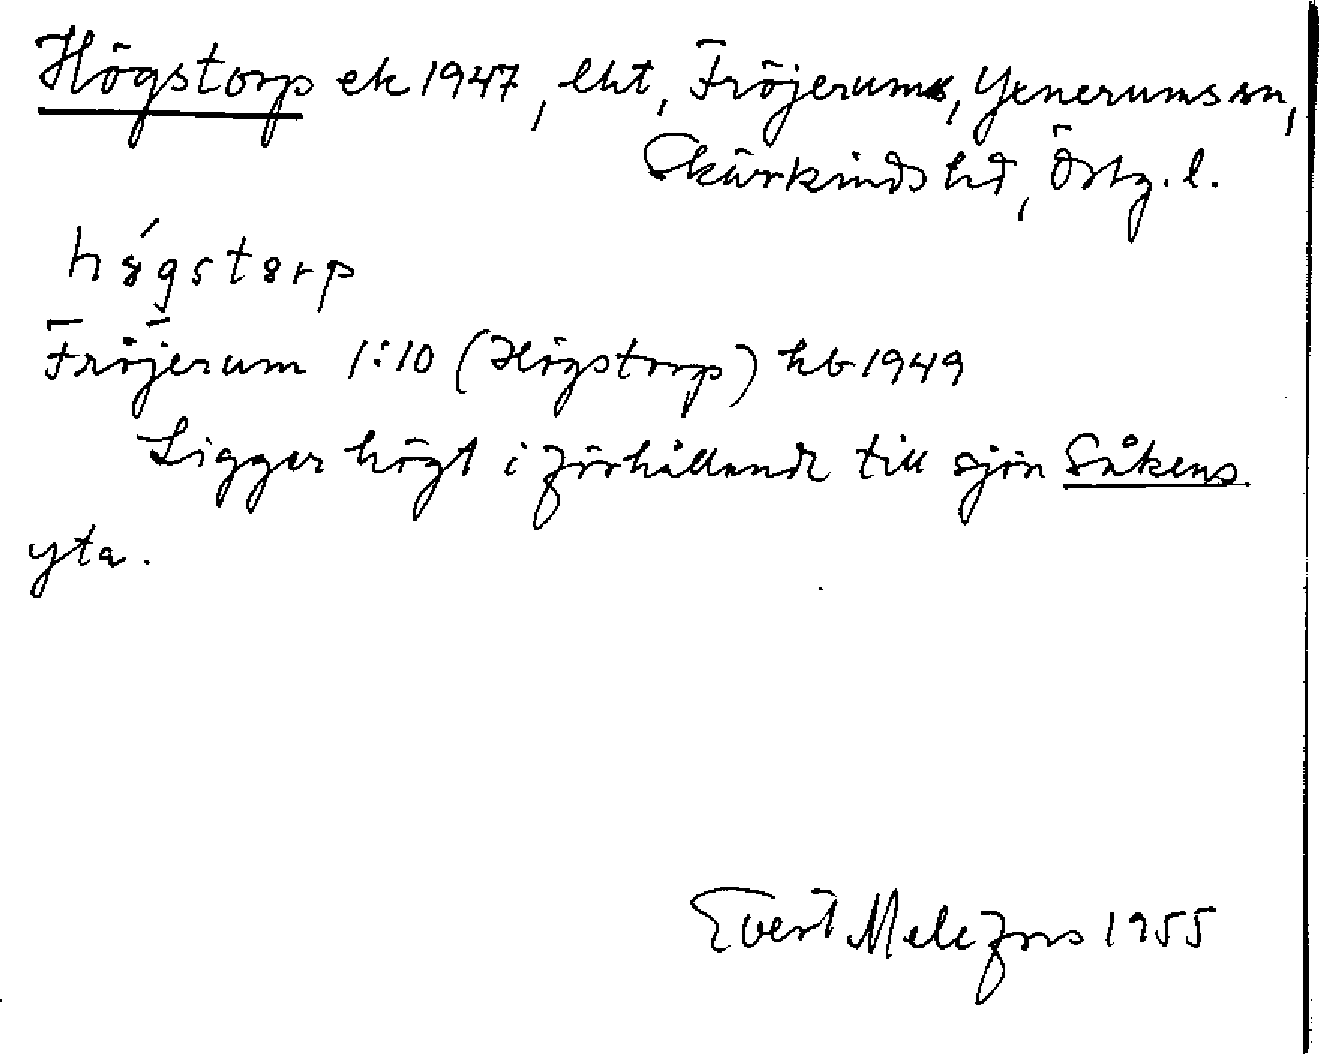 Högstorp ek 1947, lht, Fröjerum, Yxnerums sn,
Skärkinds hd, Östg. l.
hǿgstɵrp
Fröjerum 1:10 (Högstorp) hb 1949
Ligger högt i förhållande till sjön Såkens
yta.
Evert Melefors 1955